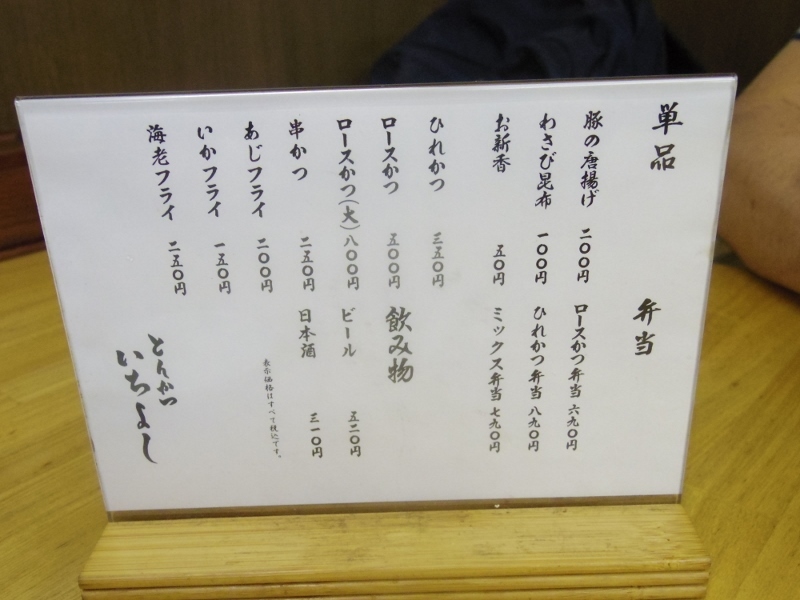 単品
豚の唐揚げ 二〇〇円
わさび昆布 一〇〇円
お新香 五〇円
ひれかつ 三五〇円
ロースかつ 五〇〇円
ロースかつ(大)八〇〇円
串かつ 二五〇円
あじフライ 二〇〇円
いかフライ 一五〇円
海老フライ 二五〇円
弁当
ロースかつ弁当 六九〇円
ひれかつ弁当 八九〇円
ミックス弁当 七九〇円
飲み物
ビール 五二〇円
日本酒 三一〇円
表示価格はすべて税込です。
とんかつ
いちよし